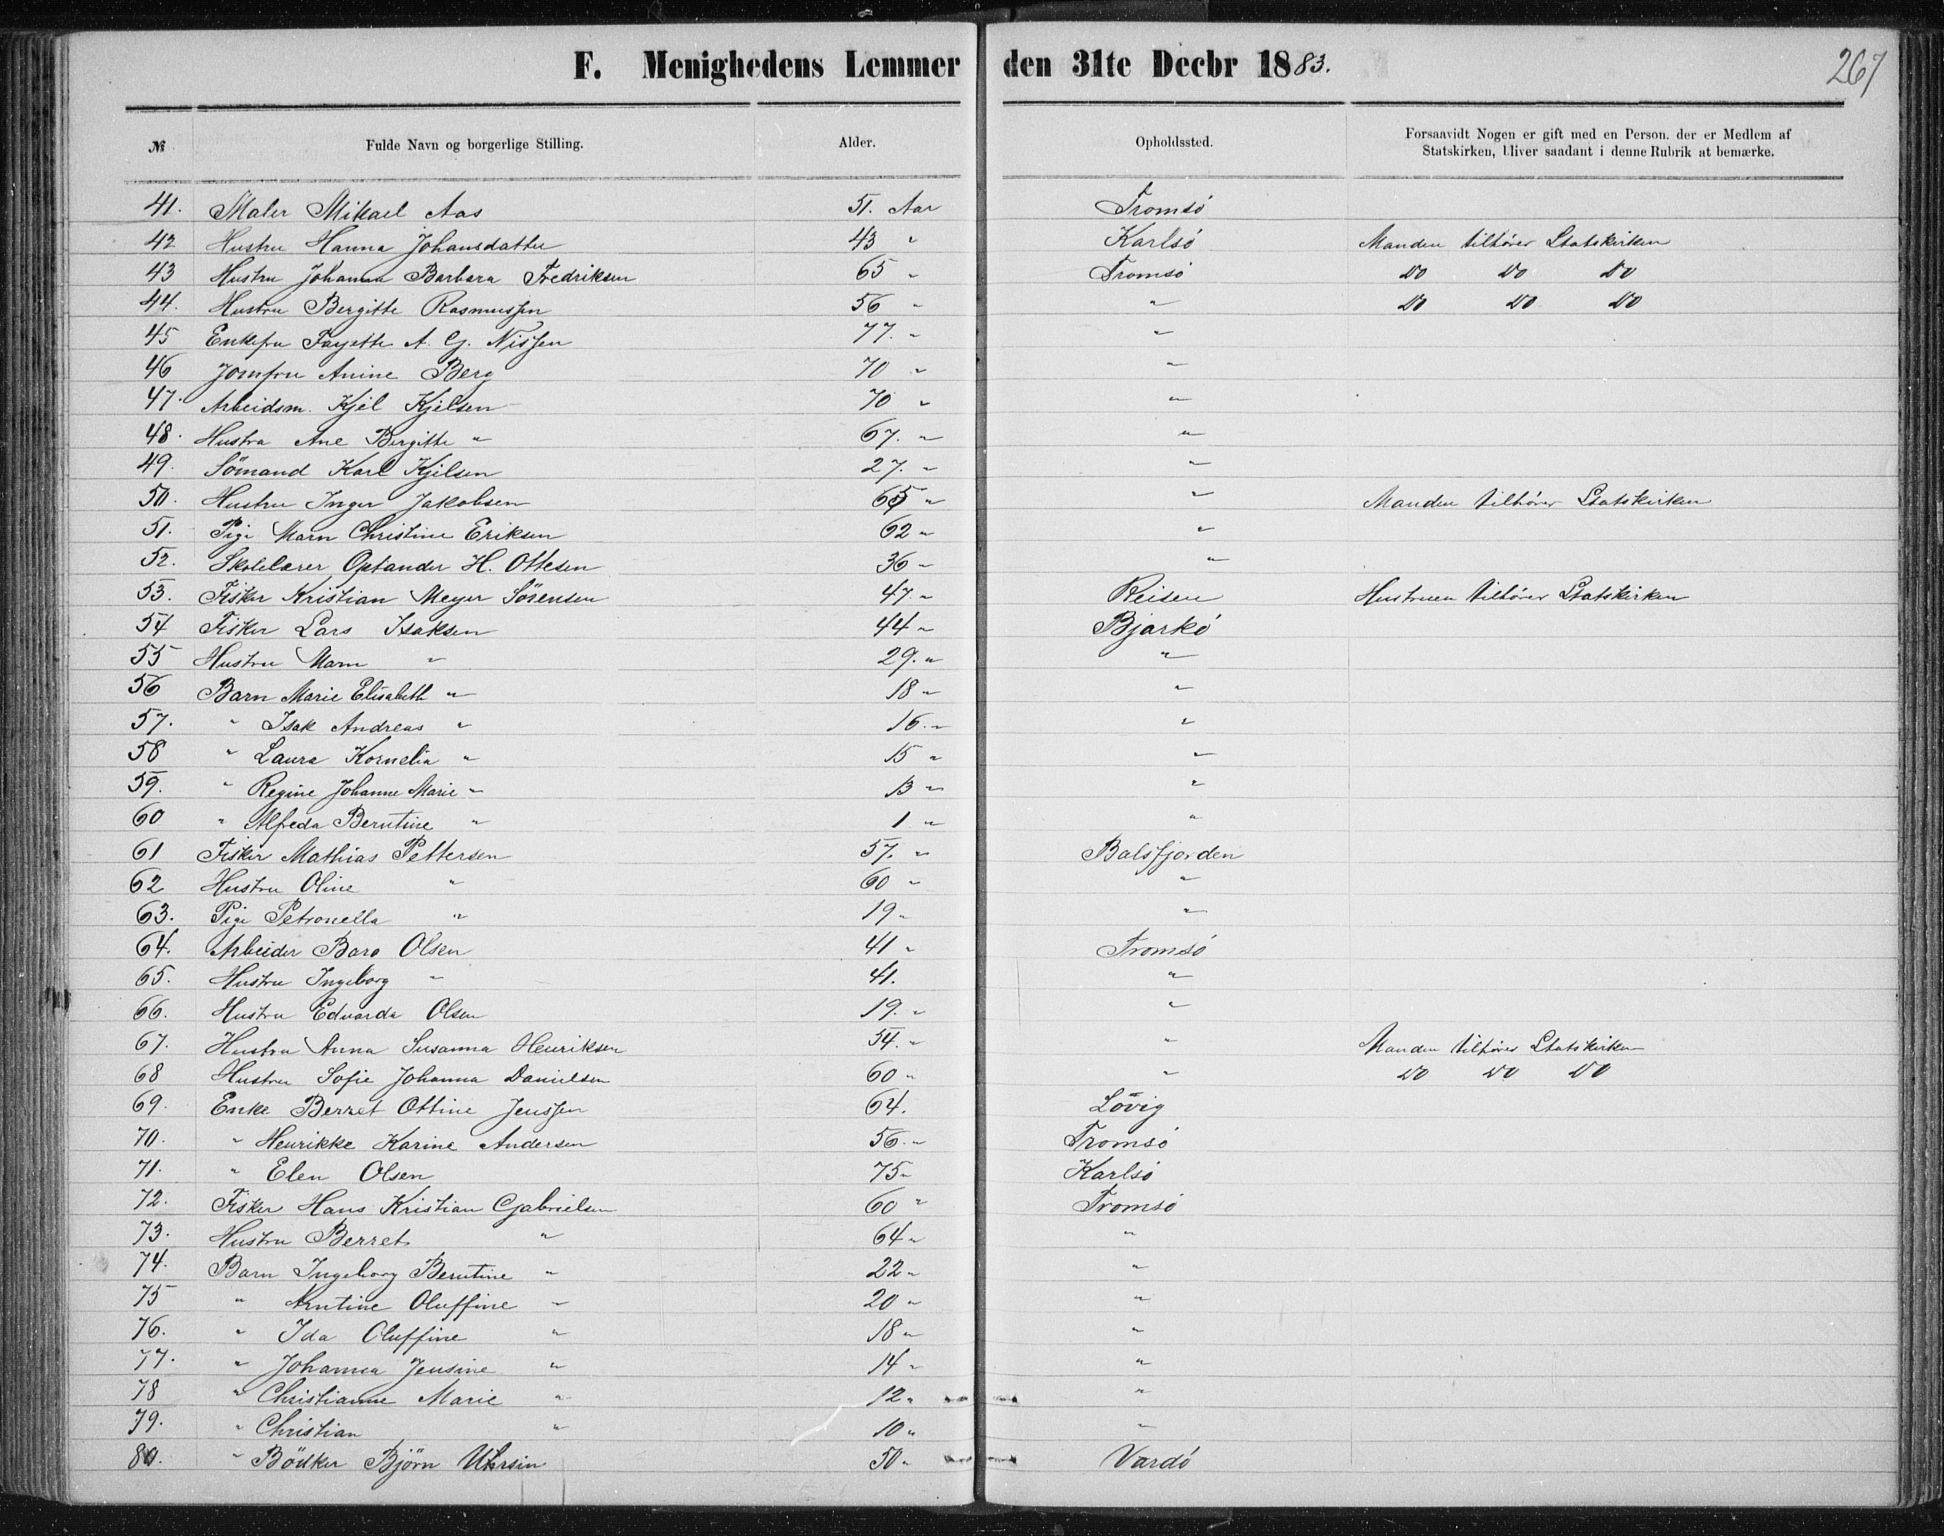 F. Menighedens Lemmer den 31te Decbr 1883. 267
№ Fulde Navn og borgerlige Stilling. Alder. Opholdssted. Forsaavidt Nogen er gift med en Person, der er Medlem af
Statskirken, bliver saadant i denne Rubrik at bemærke.
41. Maler Mikael Aas 51. Aar Tromsö
42 Hustru Hanna Johansdatter 43 " Karlsö Manden tilhører Statskirken
43 Hustru Johanna Barbara Fredriksen 65 " Tromsö Do Do Do
44. Hustru Bergitte Rasmussen 56 " " Do Do Do
45 Enkefru Fayette A. G. Nissen 77. " "
46 Jomfru Anine Berg 70 " "
47. Arbeidsm. Kjel Kjelsen 70 " "
48. Hustru Ane Bergitte " 67. " "
49. Sömand Karl Kjelsen 27. " "
50. Hustru Inger Jakobsen 65 " " Manden tilhører Statskirken
51. Pige Marn Christine Eriksen 62 " "
52. Skolelærer Optander H. Ottesen 36 " "
53. Fisker Kristian Meyer Sörensen 47 " Reisen Hustruen tilhører Statskirken
54 Fisker Lars Isaksen 44 " Bjarkö
55 Hustru Marn " 29. " "
56 Barn Marie Elisabeth " 18 " "
57. " Isak Andreas " 16. " "
58 " Laura Kornelia " 15 " "
59. " Regine Johanne Marie " 13 " "
60 " Alfreda Berntine " 1 " "
61 Fisker Mathias Pettersen 57. " Balsfjorden
62 Hustru Oline " 60 " "
63. Pige Petronella " 19 " "
64. Arbeider Baro Olsen 41 " Tromsö
65. Hustru Ingeborg " 41. "
66. Hustru Edvarda Olsen 19. " "
67. Hustru Anna Susanna Henriksen 54. " " Manden tilhører Statskirken
68 Hustru Sofie Johanna Danielsen 60 " " Do Do Do
69. Enke Berret Ottine Jenssen 64. Lövig
70. " Henrikke Karine Andersen 56. " Tromsö
71. " Elen Olsen 75 " Karlsö
72. Fisker Hans Kristian Gabrielsen 60 " Tromsö
73. Hustru Berret " 64 " "
74. Barn Ingeborg Berntine " 22 " "
75 " Arntine Oluffine " 20 " "
76. " Ida Oluffine " 18 " "
77. " Johanna Jensine " 14 " "
78 " Christianne Marie " 12 " "
79. " Christian " 10 " "
80. " Bödker Björn Uhrsin 50 " Vardö